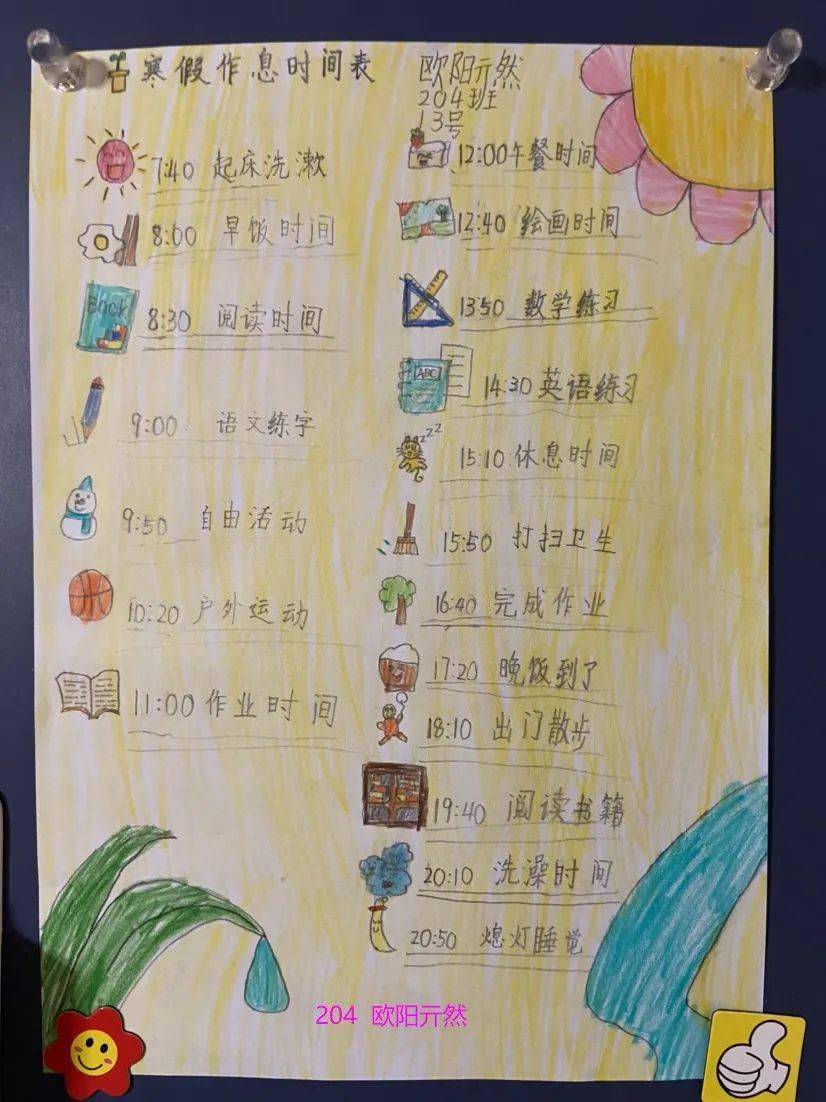 寒假作息时间表
欧阳亓然
204班
13号
7:40 起床洗漱
8:00 早饭时间
BOOK
8:30 阅读时间
9:00 语文练字
9:50 自由活动
10:20 户外运动
11:00 作业时间
12:00 午餐时间
12:40 绘画时间
13:50 数学练习
ABC
14:30 英语练习
zzz
15:10 休息时间
15:50 打扫卫生
16:40 完成作业
17:20 晚饭到了
18:10 出门散步
19:40 阅读书籍
20:10 洗澡时间
20:50 熄灯睡觉
204 欧阳亓然